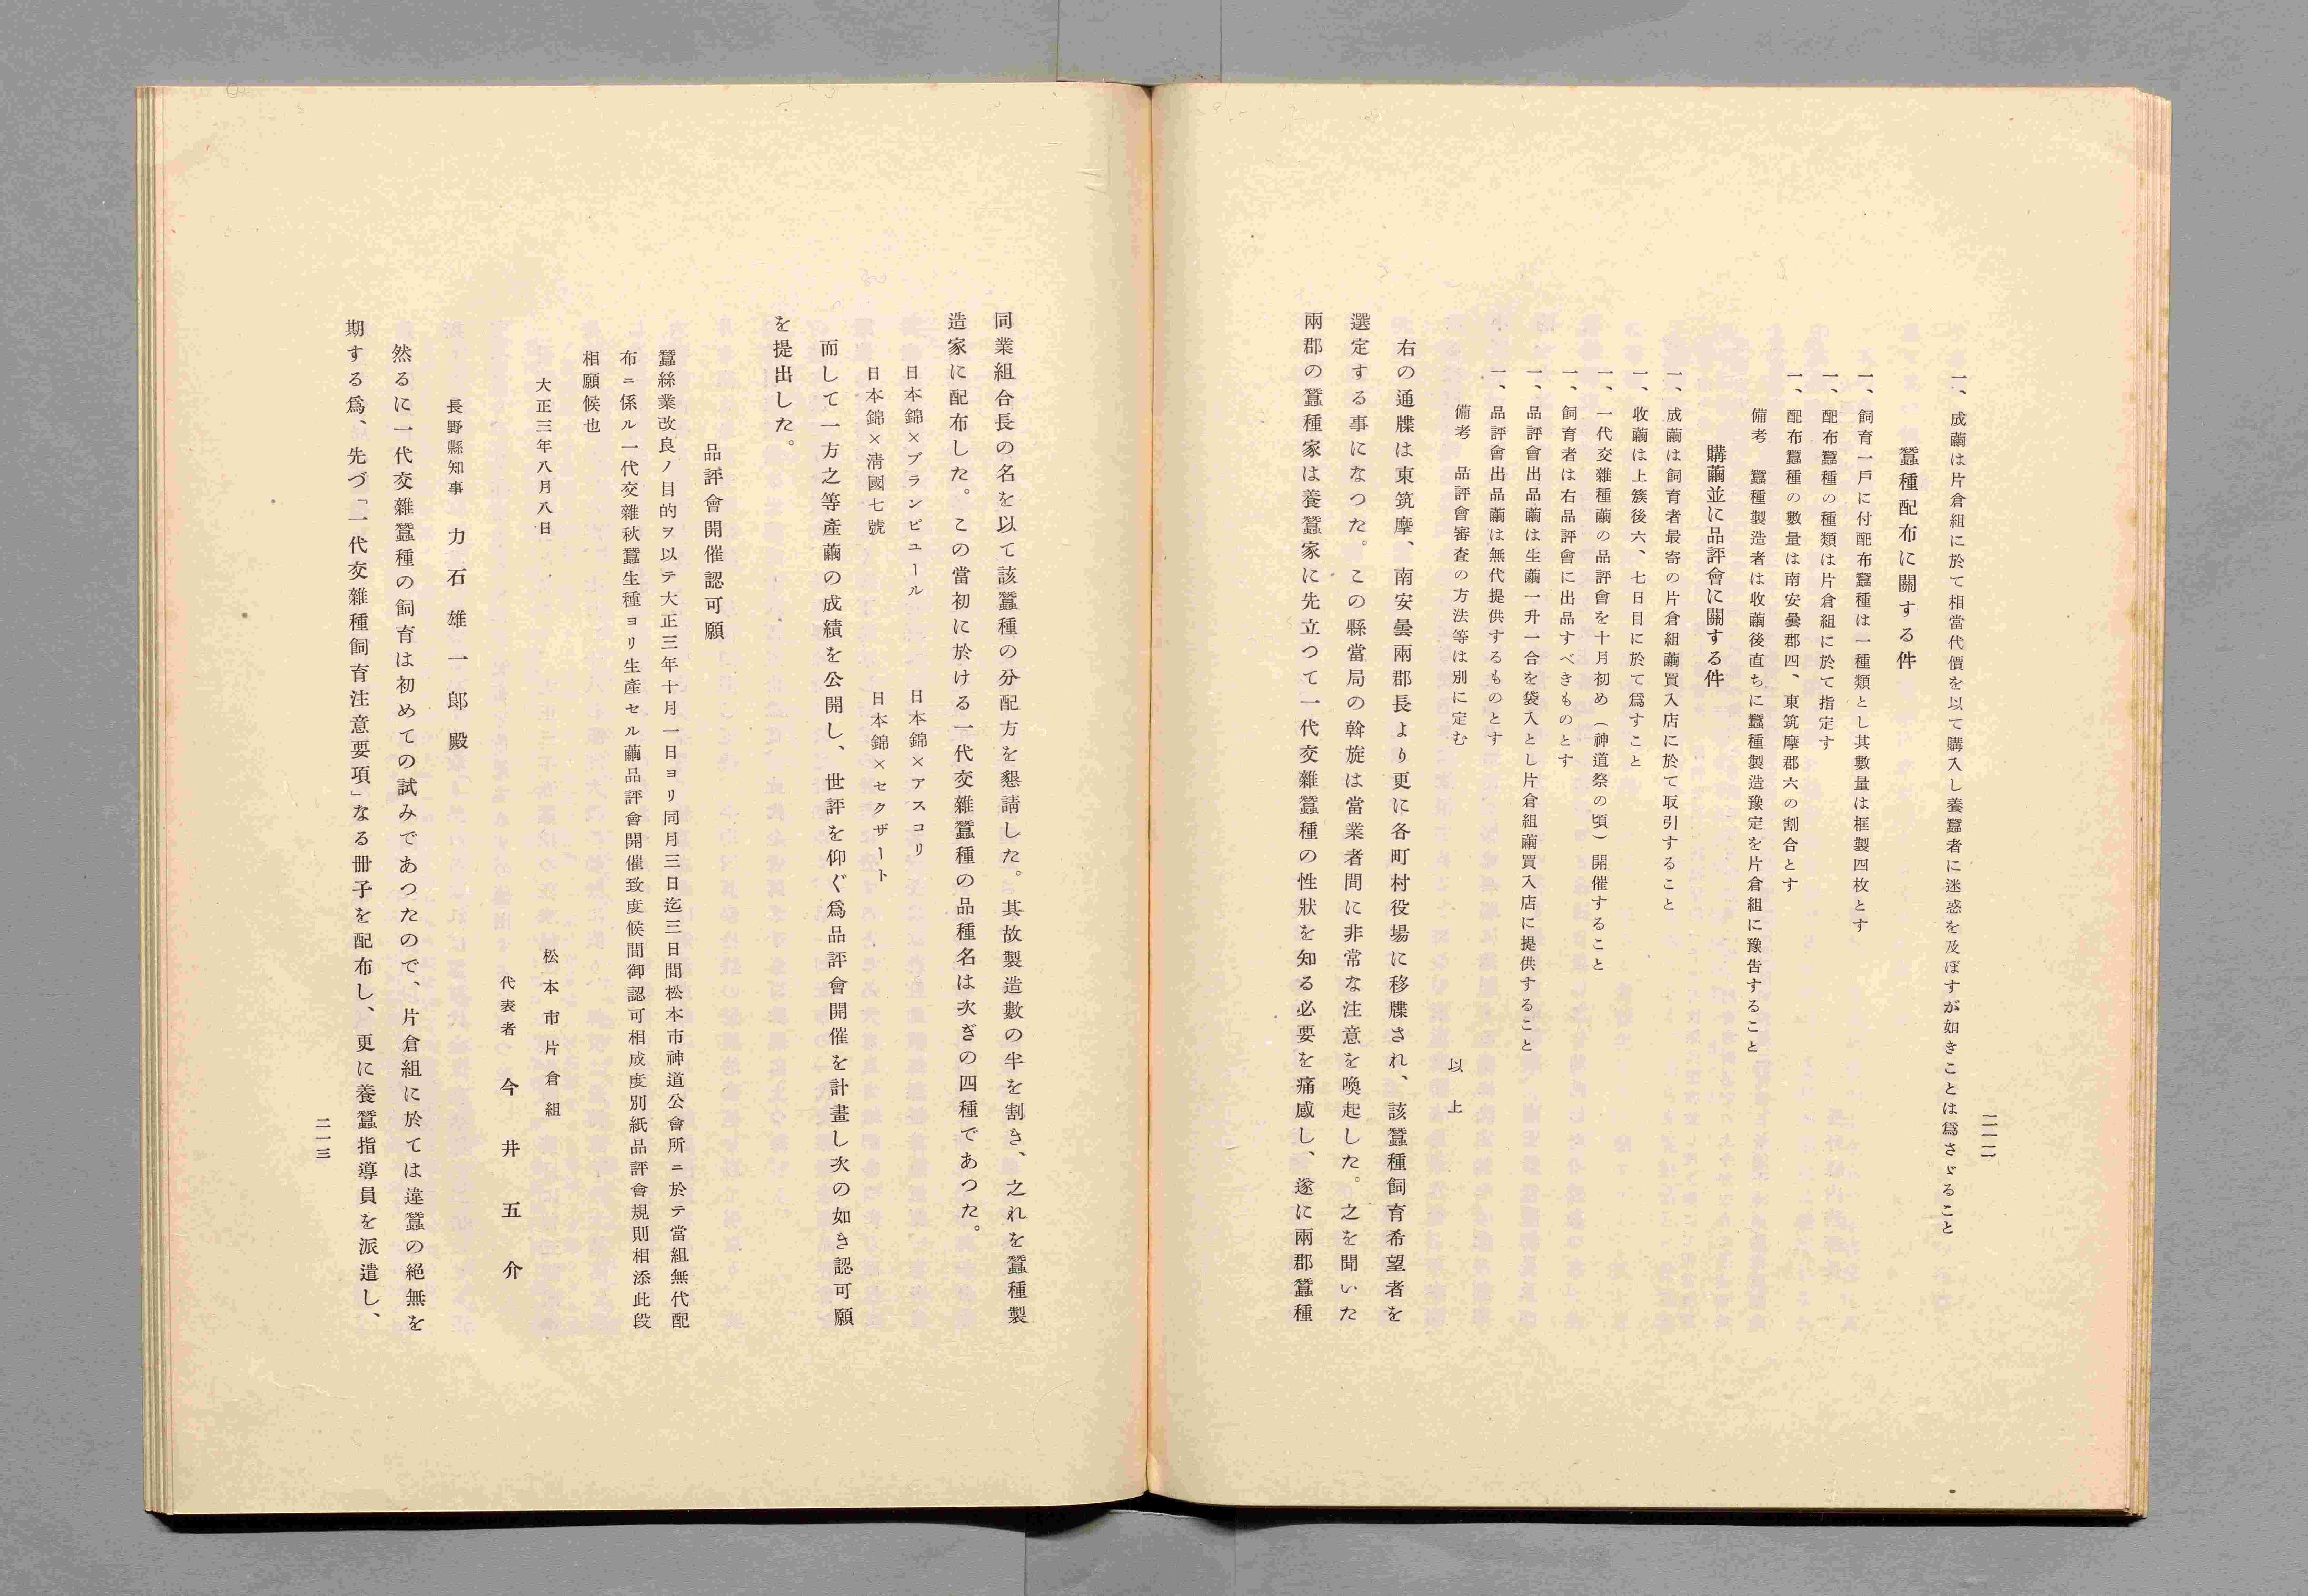 一、成繭は片倉組に於て相當代價を以て購入し養蠶者に迷惑を及ぼすが如きことは爲さゞること
蠶種配布に關する件
一、飼育一戶に付配布蠶種は一種類とし其數量は框製四枚とす
一、配布蠶種の種類は片倉組に於て指定す
一、配布蠶種の數量は南安曇郡四、東筑摩郡六の割合とす
備考　蠶種製造者は收繭後直ちに蠶種製造豫定を片倉組に豫告すること
購繭並に品評會に關する件
一、成繭は飼育者最寄の片倉組繭買入店に於て取引すること
一、收繭は上簇後六、七日目に於て爲すこと
一、一代交雜種繭の品評會を十月初め（神道祭の頃）開催すること
一、飼育者は右品評會に出品すべきものとす
一、品評會出品繭は生繭一升一合を袋入とし片倉組繭買入店に提供すること
一、品評會出品繭は無代提供するものとす
備考　品評會審査の方法等は別に定む
以上
右の通牒は東筑摩、南安曇兩郡長より更に各町村役場に移牒され、該蠶種飼育希望者を
選定する事になつた。この縣當局の斡旋は當業者間に非常な注意を喚起した。之を聞いた
兩郡の蠶種家は養蠶家に先立つて一代交雜蠶種の性狀を知る必要を痛感し、遂に兩郡蠶種
二一二
同業組合長の名を以て該蠶種の分配方を懇請した。其故製造數の半を割き、之れを蠶種製
造家に配布した。この當初に於ける一代交雜蠶種の品種名は次ぎの四種であつた。
日本錦×ブランピユール　日本錦×アスコリ
日本錦×淸國七號　日本錦×セクザート
而して一方之等產繭の成績を公開し、世評を仰ぐ爲品評會開催を計畫し次の如き認可願
を提出した。
品評會開催認可願
蠶絲業改良ノ目的ヲ以テ大正三年十月一日ヨリ同月三日迄三日間松本市神道公會所ニ於テ當組無代配
布ニ係ル一代交雜秋蠶生種ヨリ生產セル繭品評會開催致度候間御認可相成度別紙品評會規則相添此段
相願候也
大正三年八月八日
松本市片倉組
代表者　今井五介
長野縣知事　力石雄一郎殿
然るに一代交雜蠶種の飼育は初めての試みであつたので、片倉組に於ては違蠶の絕無を
期する爲、先づ「一代交雜種飼育注意要項」なる冊子を配布し、更に養蠶指導員を派遣し、
二一三